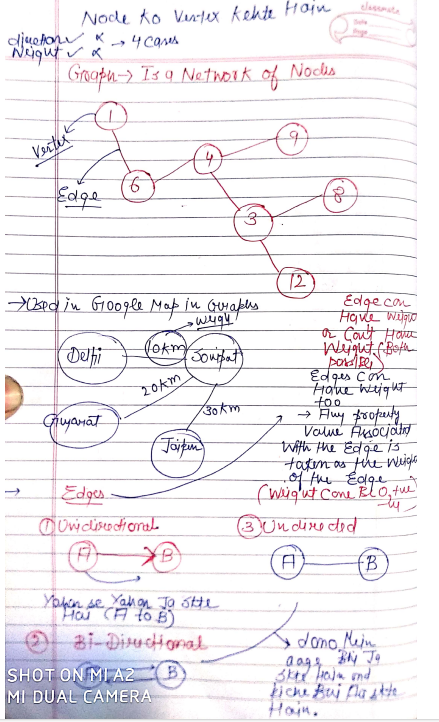 Node Ko Vertex Kehte Hain
classmate
Date
Page
direction ✓ x
Weight ✓ x → 4 cases
Graph → Is a Network of Nodes
1
9
Vertex
4
6
Edge
8
3
12
→ Used in Google Map in Graphs
weight
Delhi
10km
Sonipat
20km
30km
Gujarat
Jaipur
Edge can
Have Weight
or Can't Have
Weight (Both
possible)
Edges Can
Have Weight
too
→ Any property
Value Associated
With the Edge is
taken as the Weight
of the Edge
(Weight Cane Be 0, +ve
-ve
→ Edges
① Unidirectional
A B
Yahan se Yahan Ja Skte
Hai (A to B)
③ Undirected
A B
② Bi-Directional
B
→ dono Mein
aage Bhi Ja
Skte Hain and
Piche Bhi Aa Skte
Hain.
SHOT ON MI A2
MI DUAL CAMERA